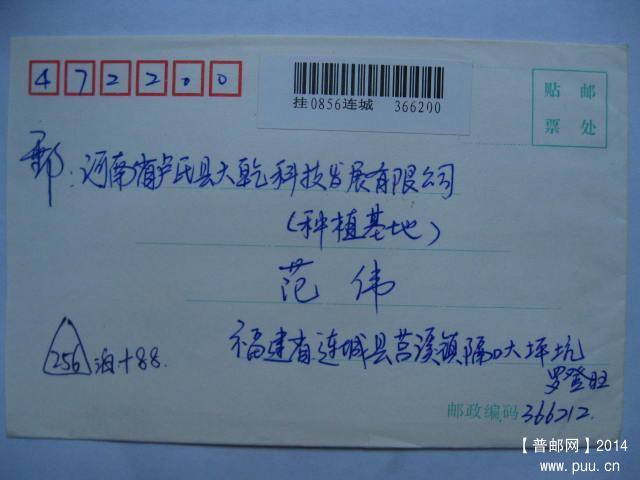 472200
挂0856连城 366200
贴 邮
票 处
邮: 河南省卢氏县大乾科技发展有限公司
(种植基地)
范 伟
256 泊+88.
福建省连城县莒溪镇隔口大坪坑
罗登旺
邮政编码 366212.
【普邮网】2014
www.puu.cn